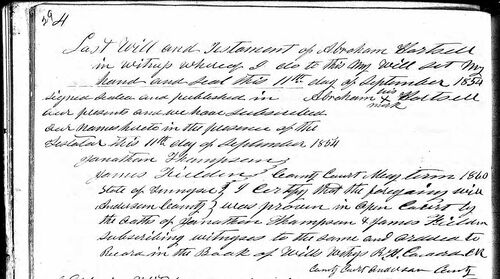 294
Last Will and Testament of Abraham
in witness whereof I do to this my will set my
hand and seal this 11th day of September 1854
his
signed sealed and published in Abraham X
mark
our presents and we have subscribed
our names hereto in the presence of the
Testator this 11th day of September 1854
Jonathan Thompson
James Fielden County Court May term 1860
State of Tennessee } I certify that the foregoing will
Anderson County } was proven in open Court by
the oaths of Jonathan Thompson & James Fielden
subscribing witnesses to the same and ordered to
Record in the Book of Wills
County Court Anderson County